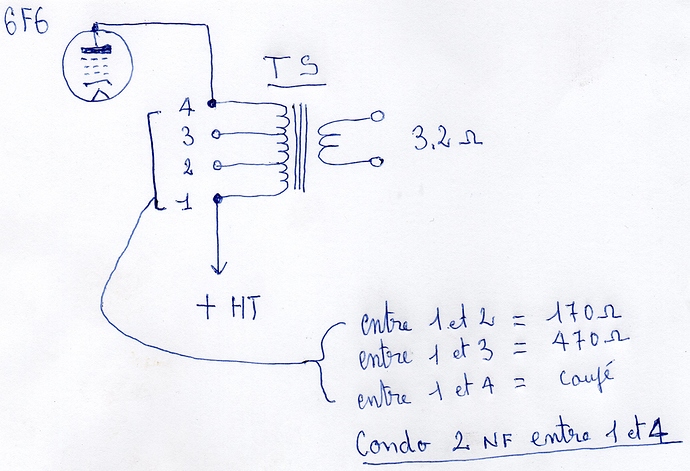 6F6
TS
4
3
2
1
3,2 Ω
+ HT
entre 1 et 2 = 170Ω
entre 1 et 3 = 470Ω
entre 1 et 4 = Coupé
Condo 2 NF entre 1 et 4